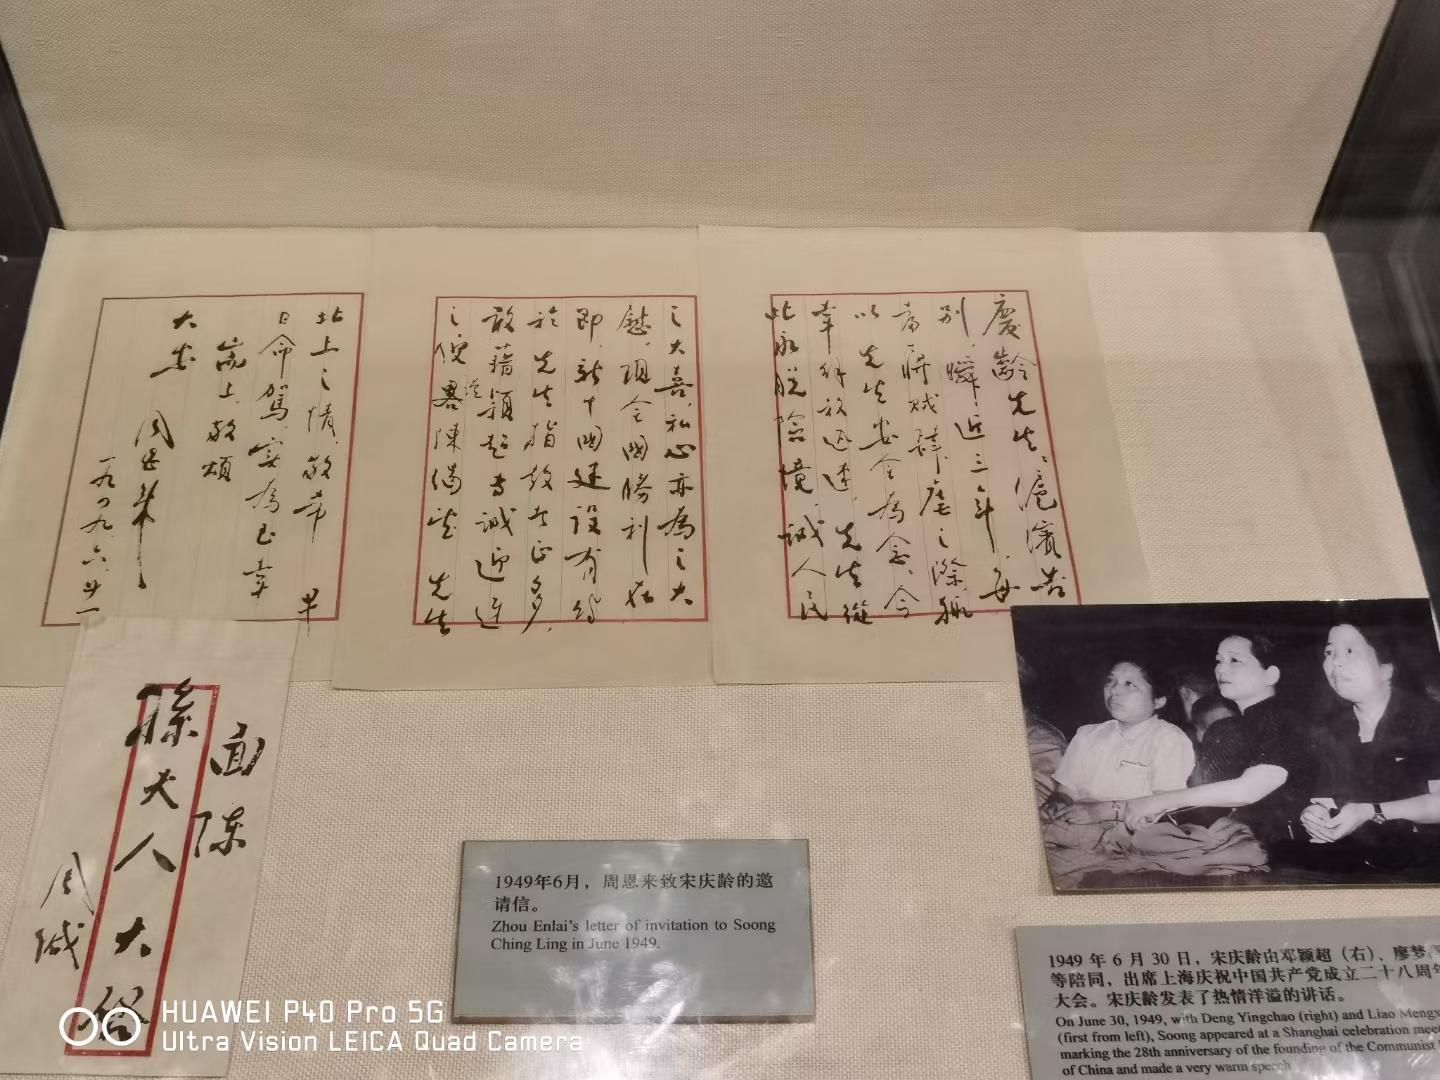 慶齡先生：滬濱告
別，瞬近三年，每
當蔣賊肆虐之際，輒
以先生安全為念。今
幸解放迅速，先生從
此永脫險境，誠人民
之大喜，私心亦為之大
慰。現全國勝利在
即，新中國建設有待
於先生指教者正多，
敢藉穎超專誠迎迓
之便，謹略陳渴望先生
北上之情。敬希早
日命駕，實為至幸
耑上。敬頌
大安
周恩來
一九四九、六、廿一
面陳
孫夫人大啓
周緘
1949年6月，周恩来致宋庆龄的邀
请信。
Zhou Enlai's letter of invitation to Soong
Ching Ling in June 1949.
1949 年 6 月 30 日，宋庆龄由邓颖超（右）、廖梦
等陪同，出席上海庆祝中国共产党成立二十八周年
大会。宋庆龄发表了热情洋溢的讲话。
On June 30, 1949, with Deng Yingchao (right) and Liao Mengx
(first from left), Soong appeared at a Shanghai celebration mee
marking the 28th anniversary of the founding of the Communist
of China and made a very warm speech
HUAWEI P40 Pro 5G
Ultra Vision LEICA Quad Camera